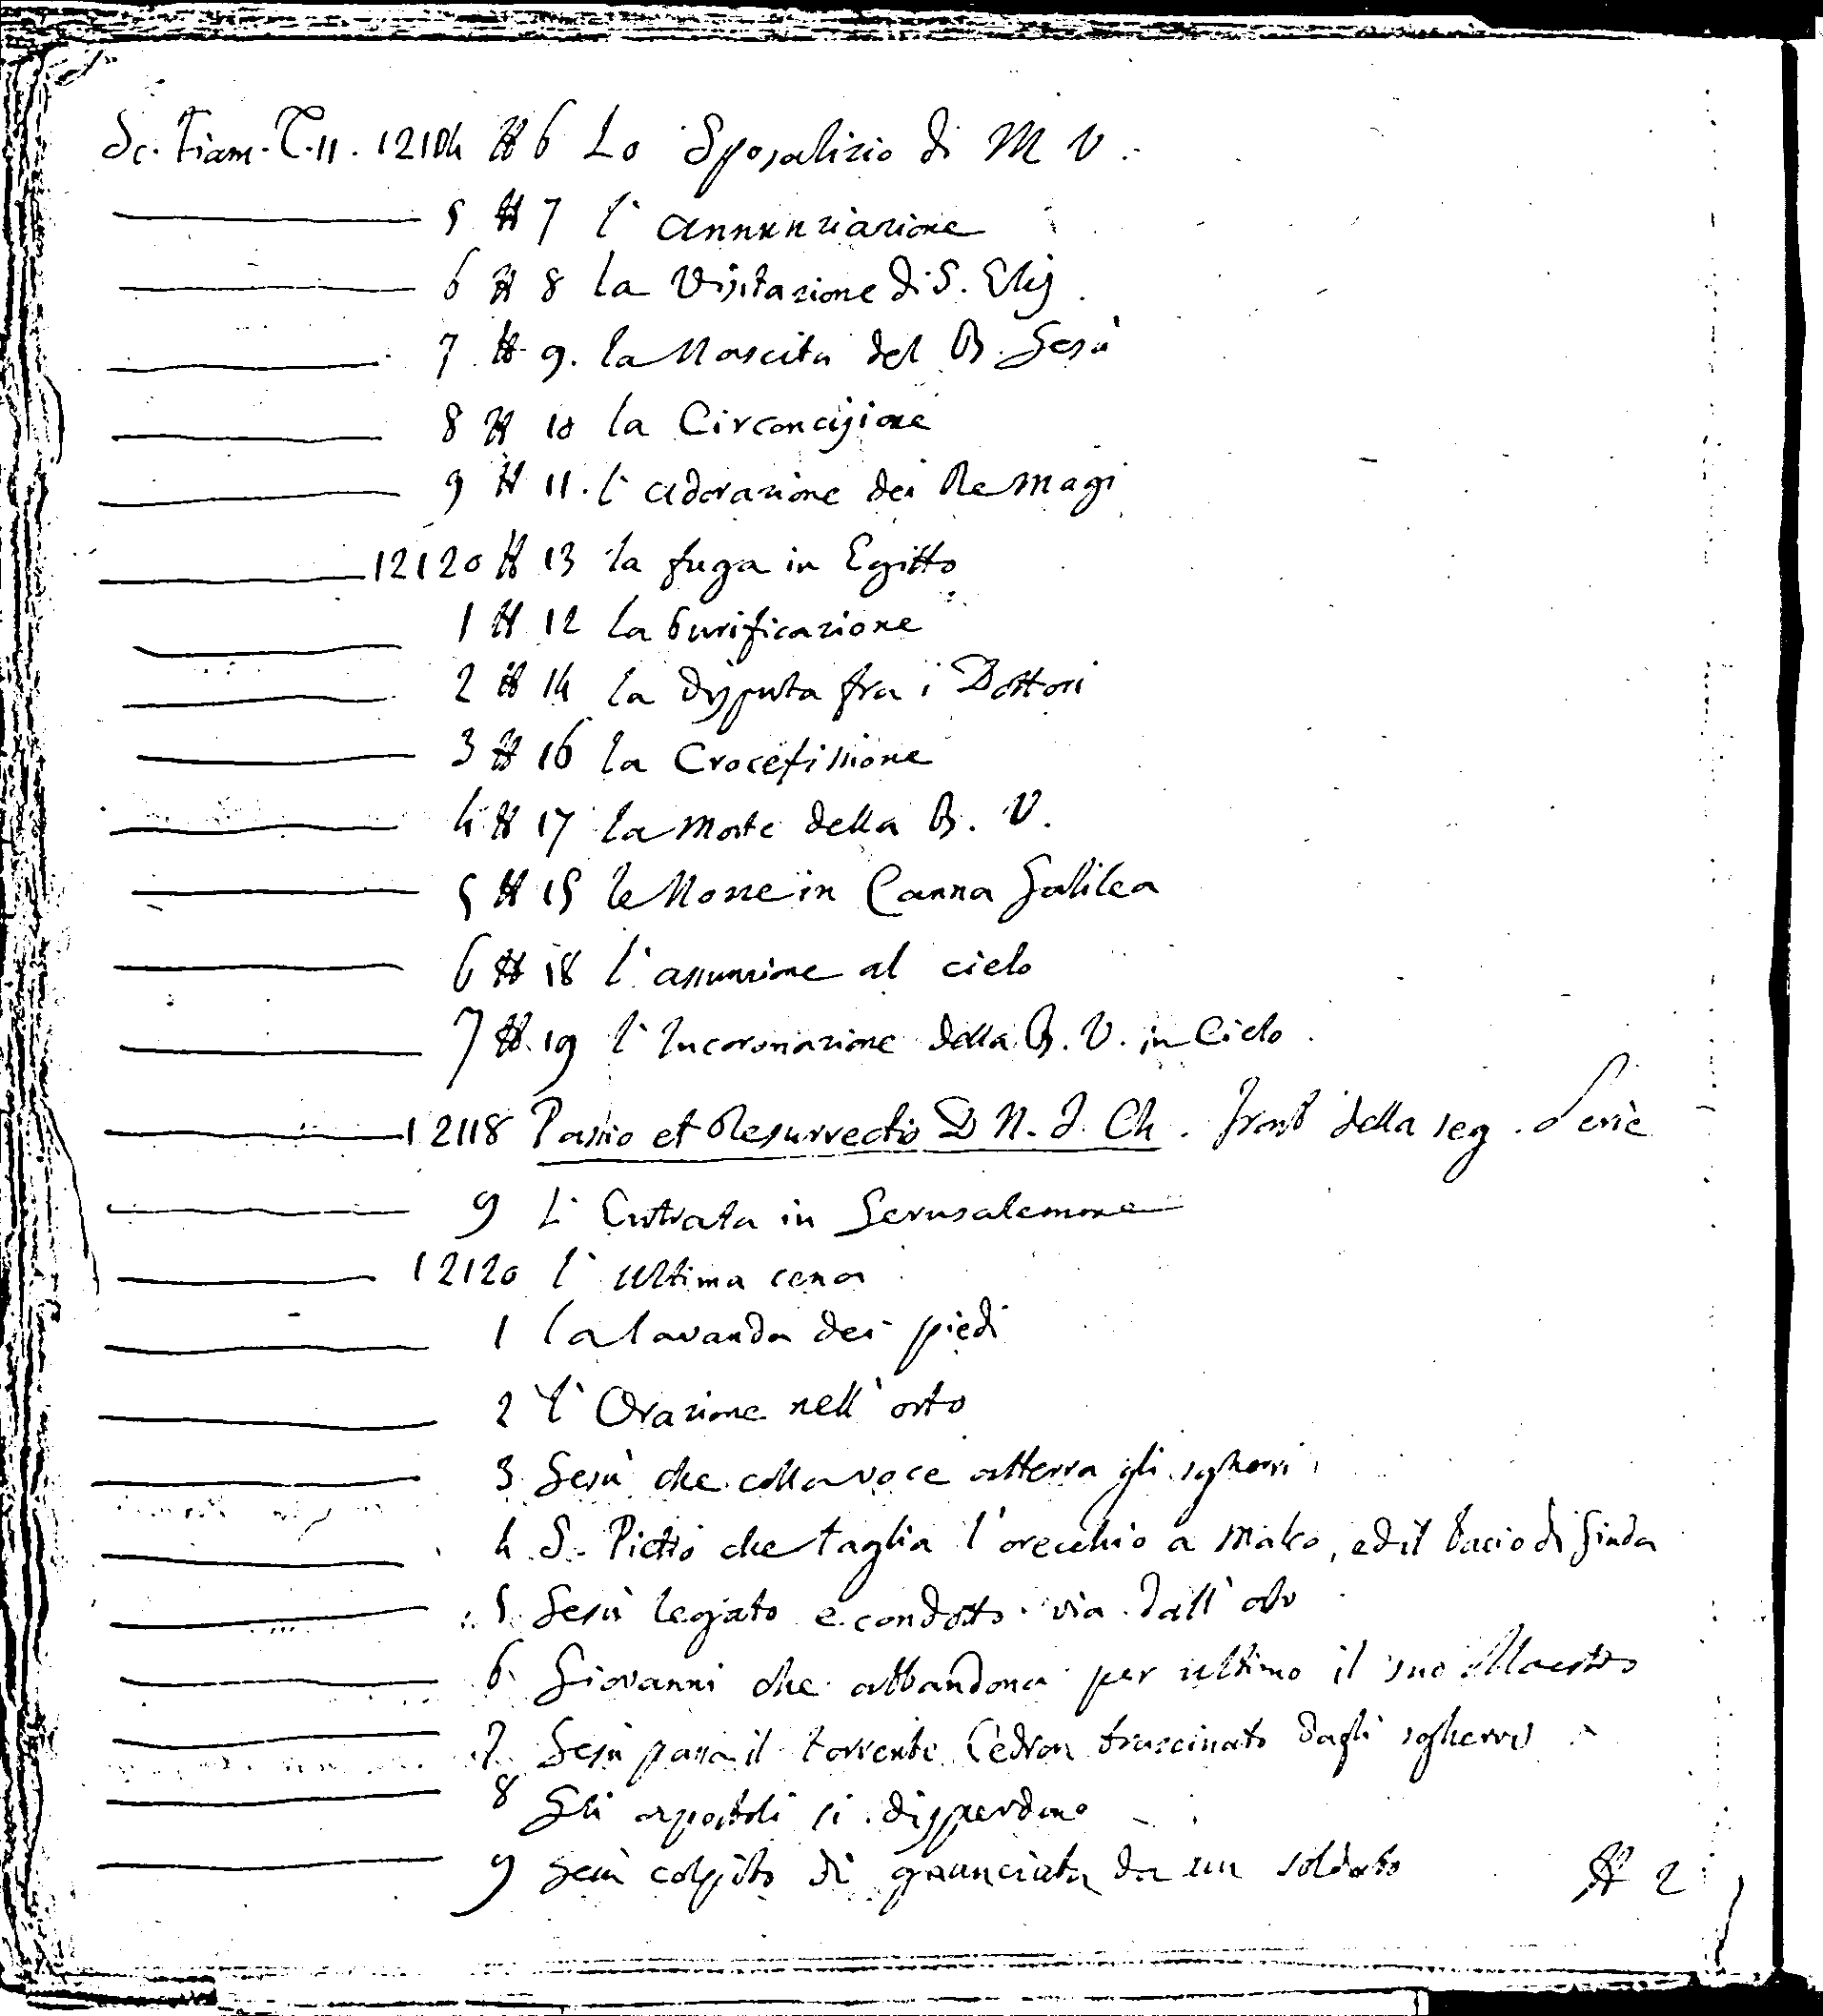 Sc. Fiam. T. 11. 12104 # 6 Lo Sposalizio di M V.
5 # 7 l'annunziazione
6 # 8 la Visitazione di S. Elis
7 # 9. la Nascita del B. Gesù
8 # 10 la Circoncisione
9 # 11. l'adorazione dei Re Magi
12120 # 13 la fuga in Egitto
1 # 12 la Purificazione
2 # 14 la disputa fra i Dottori
3 # 16 la Crocefissione
4 # 17 la Morte della B. V.
5 # 15 le Nozze in Canna Galilea
6 # 18 l'assunzione al cielo
7 # 19 l'Incoronazione della B. V. in Cielo.
12118 Passio et Resurrectio D N. J. Ch. front della seg. Serie
9 L'Entrata in Gerusalemme
12120 l'ultima cena
1 la lavanda dei piedi
2 l'Orazione nell'orto
3 Gesù che colla voce atterra gli sgherri
4 S. Pietro che taglia l'orecchio a Malco, ed il bacio di Giuda
5 Gesù legato e condotto via dall'orto
6 Giovanni che abbandona per ultimo il suo Maestro
7 Gesù passa il torrente Cedron trascinato dagli sgherri
8 Gli apostoli si disperdono
9 Gesù colpito di guanciata da un soldato # 2